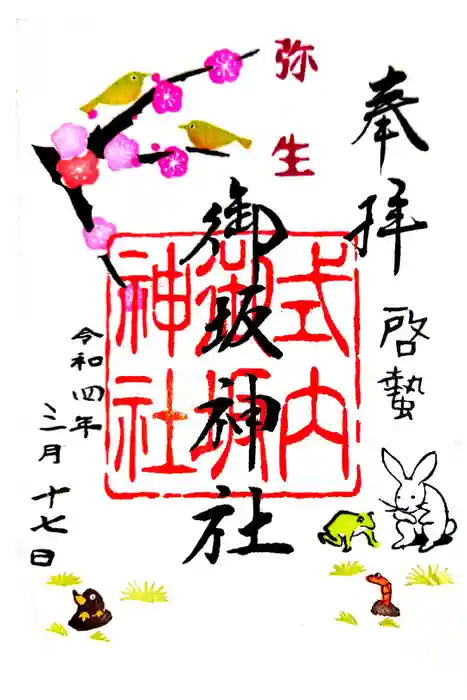 奉拝
啓蟄
弥生
式内
御坂
神社
御坂神社
令和四年
三月十七日